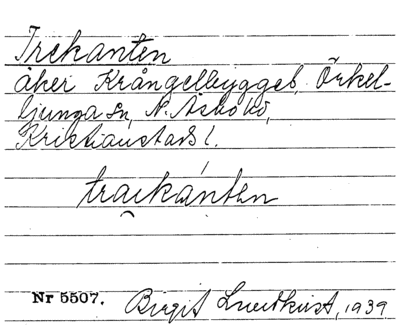 Trekanten
åker Krångelbygget, Örkel-
ljunga sn, N. Åsbo hd,
Kristianstads l.
traikánten
Nr 5507. Birgit Lundkvist, 1939